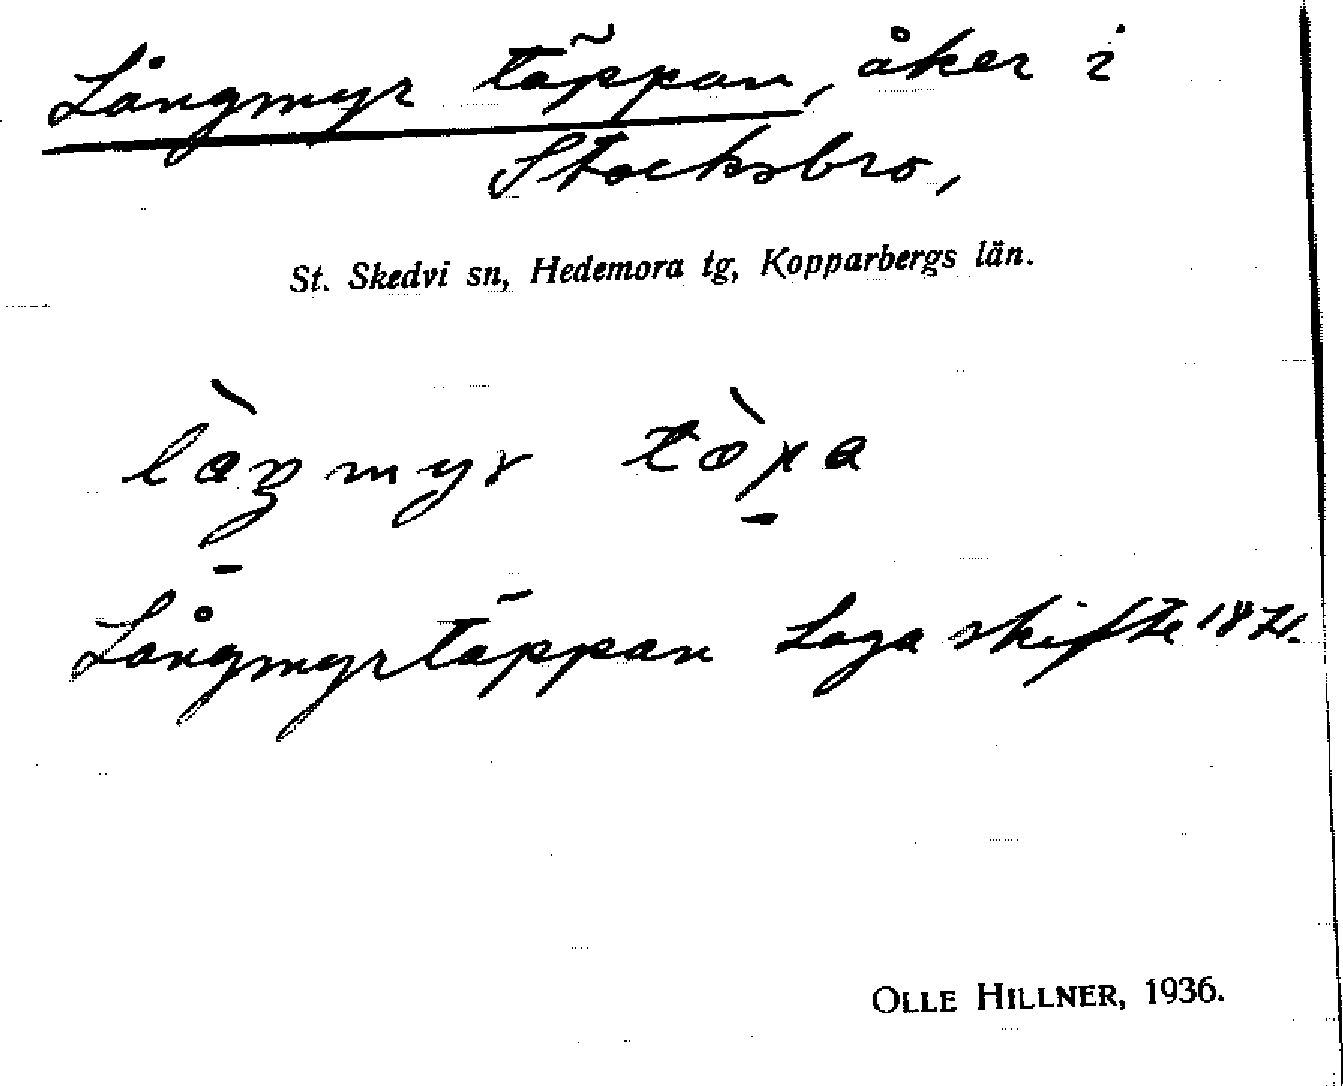 Långmyr täppan, åker i
Stocksbro,
St. Skedvi sn, Hedemora tg, Kopparbergs län.
Långmyrtäppan Laga skifte
OLLE HILLNER, 1936.